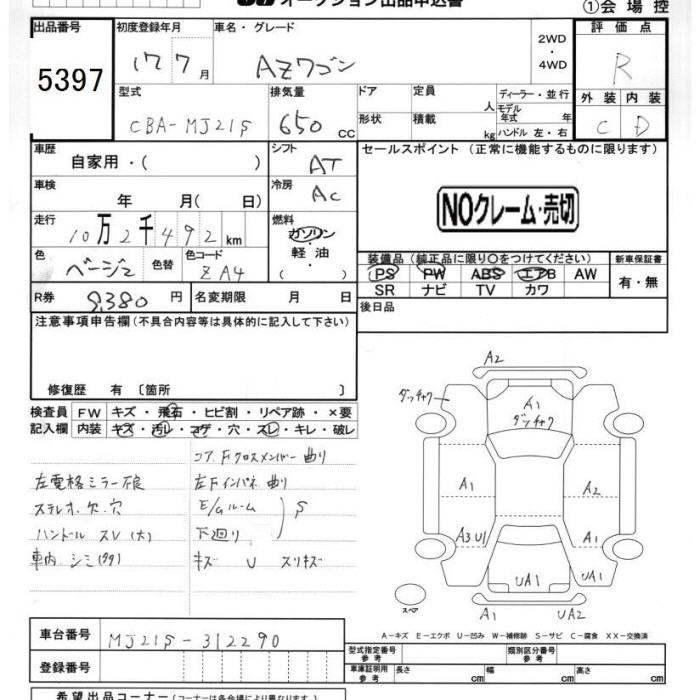 オークション出品申込書
①会場控
出品番号 初度登録年月 車名・グレード 評価点
5397 17 7月 AZワゴン 2WD・4WD R
型式 排気量 ドア 定員 人 ディーラー・並行 外装 内装
CBA-MJ21S 650 CC 形状 積載 kg モデル年式 年 ハンドル 左・右 C D
車歴 自家用・( ) シフト AT セールスポイント (正常に機能するものに限ります)
車検 年 月( 日) 冷房 AC
NOクレーム・売切
走行 10万2千492km 燃料 ガソリン・軽油・( )
色 ベージュ 色替 色コード ZA4
装備品(純正品に限り○をつけてください) 新車保証書
PS PW ABS エアB AW 有・無
SR ナビ TV カワ
R券 9,380円 名変期限 月 日 後日品
注意事項申告欄(不具合内容等は具体的に記入して下さい)
修復歴 有 〔箇所 〕
検査員記入欄 FW キズ・飛石・ヒビ割・リペア跡・×要
内装 キズ・汚レ・コゲ・穴・スレ・キレ・破レ
コア、Fクロスメンバー曲り
左電格ミラー不良 左Fインパネ曲り
ステレオ欠、穴 E/Gルーム S
ハンドル スレ(大) 下廻り
車内 シミ(多々) キズ U スリキズ
A2
ダッチャク A1 ダッチャク
A1 A2
A3.U1 A1
UA1 UA1
スペア A1 UA2
A－キズ E－エクボ U－凹み W－補修跡 S－サビ C－腐食 XX－交換済
車台番号 MJ21S-312290
型式指定番号 参考 類別区分番号 参考
登録番号 車庫証明用 参考 長さ cm 幅 cm 高さ cm
希望出品コーナー(コーナーは各会場により異なります)